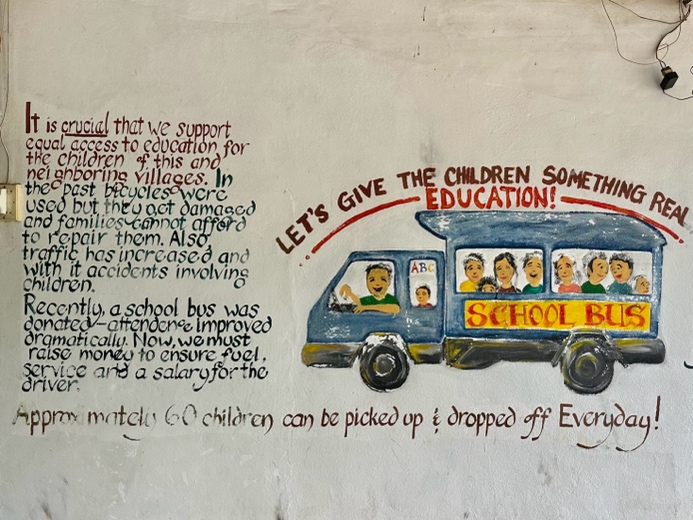 It is crucial that we support
equal access to education for
the children of this and
neighboring villages. In
the past bicycles were
used but they get damaged
and families cannot afford
to repair them. Also,
traffic has increased and
with it accidents involving
children.
Recently, a school bus was
donated—attendence improved
dramatically. Now, we must
raise money to ensure fuel,
service and a salary for the
driver.
LET'S GIVE THE CHILDREN SOMETHING REAL
EDUCATION!
ABC
SCHOOL BUS
Approximately 60 children can be picked up & dropped off Everyday!